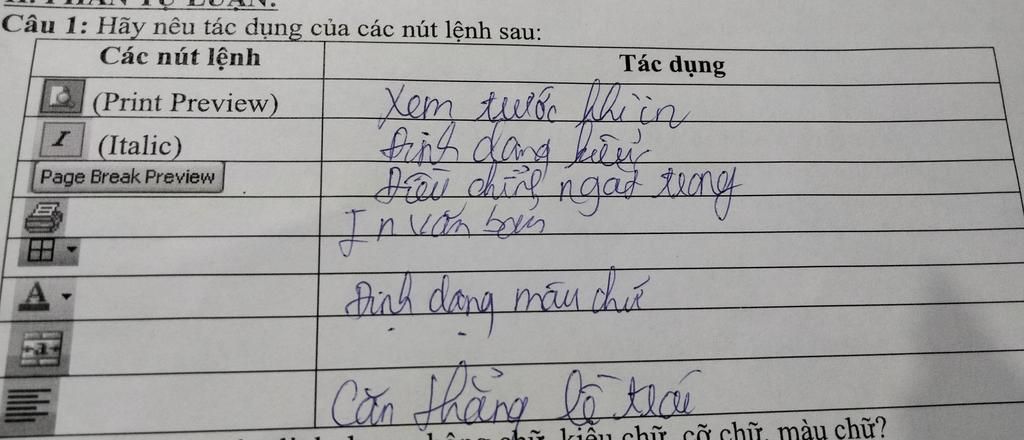 II. PHẦN TỰ LUẬN:
Câu 1: Hãy nêu tác dụng của các nút lệnh sau:
Các nút lệnh Tác dụng
(Print Preview) Xem trước khi in
I (Italic) Định dạng kiểu
Page Break Preview Điều chỉnh ngắt trang
In văn bản
A Định dạng màu chữ
a
Căn thẳng lề trái
chữ, kiểu chữ, cỡ chữ, màu chữ?